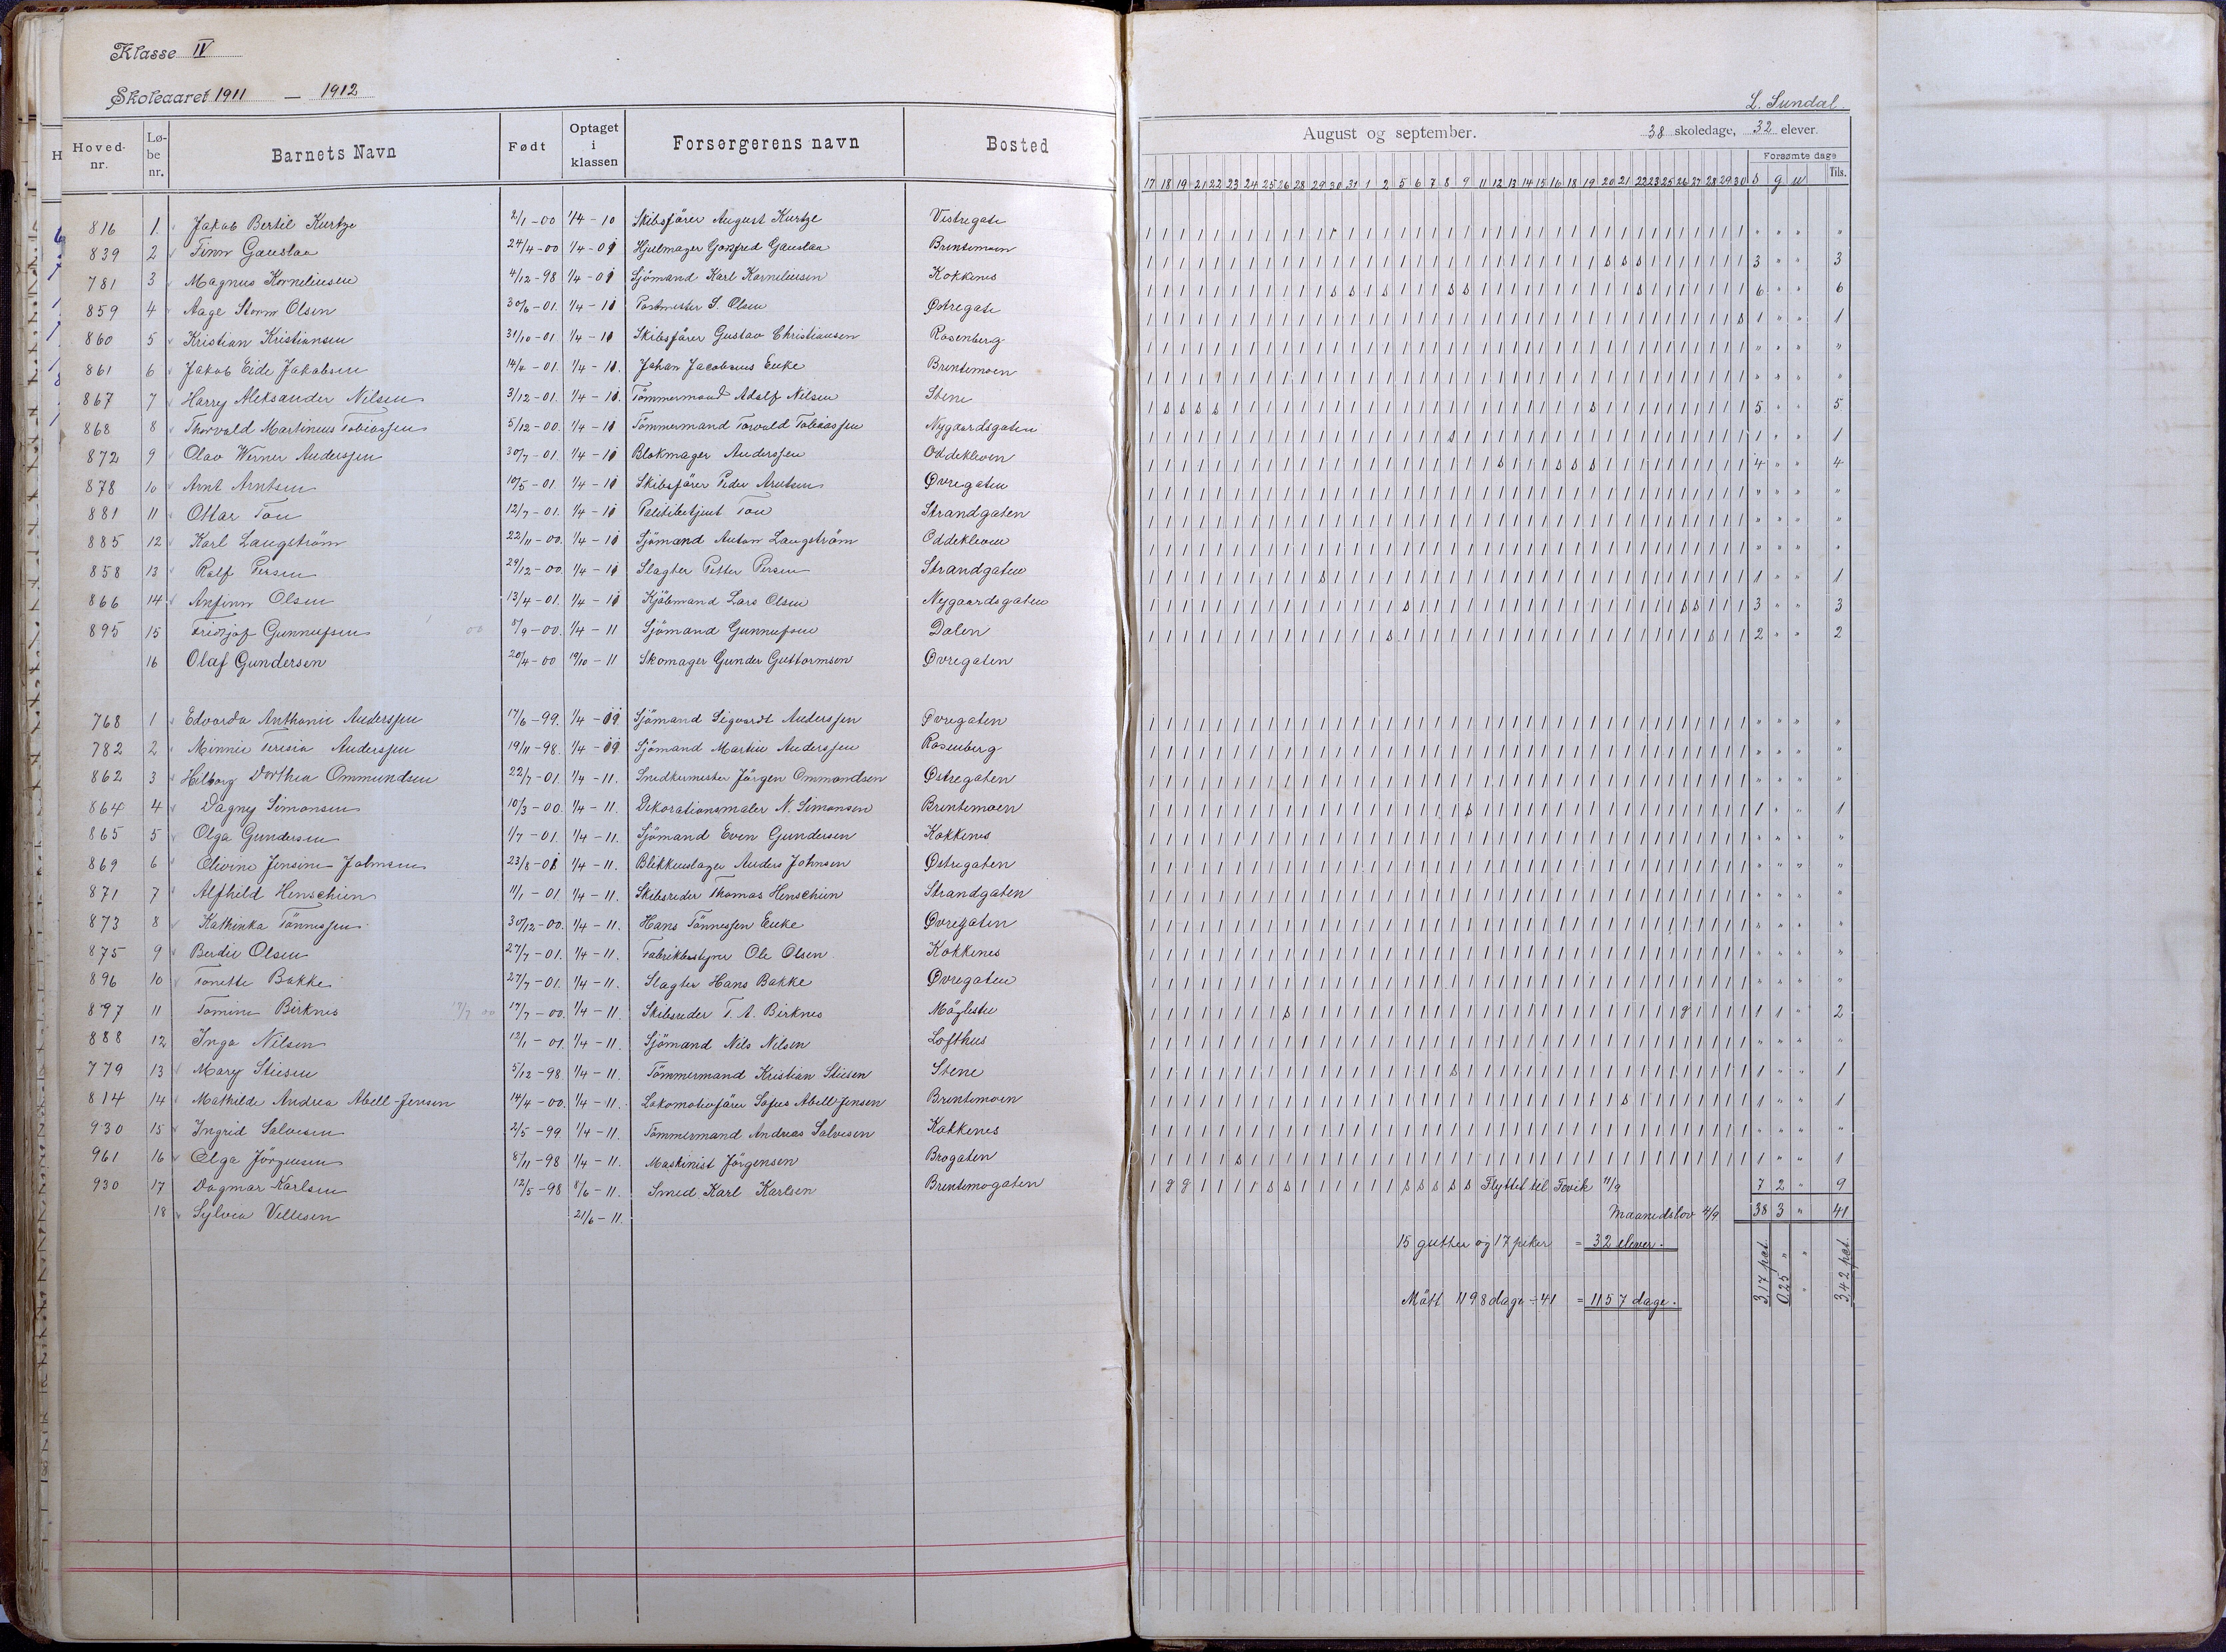 Klasse IV
Skoleaaret 1911 — 1912
Hoved-nr. Lø-be nr. Barnets Navn Født Optaget i klassen Forsørgerens navn Bosted
816 1. Jakob Bertil Kurtze 2/1-00 1/4-10 Skibsfører August Kurtze Vestregate
839 2 Finn Gauslaa 24/4-00 1/4-09 Hjulmager Gotfred Gauslaa Brintemoen
781 3 Magnus Korneliusen 4/12-98 1/4-09 Sjömand Karl Korneliusen Kokkenes
859 4 Aage Storm Olsen 30/6-01. 1/4-11 Postmester S. Olsen Østregate
860 5 Kristian Kristiansen 31/10-01. 1/4-11 Skibsfører Gustav Christiansen Rosenberg
861 6 Jakob Eide Jakobsen 14/4-01. 1/4-11. Johan Jacobsens Enke Brintemoen
867 7 Harry Aleksander Nilsen 3/12-01. 1/4-11. Tømmermand Adolf Nilsen Stene
868 8 Thorvald Martinius Tobiassen 5/12-00. 1/4-11 Tömmermand Torvald Tobiassen Nygaardsgaten
872 9 Olav Werner Anderssen 30/7-01. 1/4-11 Blokmager Anderssen Oddekleven
878 10 Arnt Arntsen 10/5-01. 1/4-11 Skibsfører Peder Arntsen Øvregaten
881 11 Ottar Tou 12/7-01. 1/4-11 Politibetjent Tou Strandgaten
885 12 Karl Langström 22/11-00. 1/4-11 Sjömand Anton Langström Oddekleven
858 13 Rolf Persen 29/12-00. 1/4-11 Slagter Petter Persen Strandgaten
866 14 Anfinn Olsen 13/4-01. 1/4-11 Kjöbmand Lars Olsen Nygaardsgaten
895 15 Fridtjof Gunnufsen 8/9-00. 1/4-11 Sjömand Gunnufsen Dalen
16 Olaf Gundersen 20/4-00 19/10-11 Skomager Gunder Guttormsen Øvregaten
768 1 Edvarda Anthonie Anderssen 17/6-99. 1/4-09 Sjömand Sigvardt Anderssen Øvregaten
782 2 Minnie Terisia Anderssen 19/11-98. 1/4-09 Sjömand Martin Anderssen Rosenberg
862 3 Hilborg Dorthea Ommundsen 22/7-01. 1/4-11. Snedkermester Jörgen Ommundsen Østregaten
864 4 Dagny Simonsen 10/3-00. 1/4-11. Dekorationsmaler N. Simonsen Brintemoen
865 5 Olga Gundersen 1/7-01. 1/4-11. Sjömand Even Gundersen Kokkenes
869 6 Olivine Jensine Johnsen 23/8-01 1/4-11. Blikkenslager Anders Johnsen Østregaten
871 7 Alfhild Henschien 11/1-01 1/4-11. Skibsreder Thomas Henschien Strandgaten
873 8 Kathinka Tönnessen 30/12-00. 1/4-11. Hans Tönnessen Enke Øvregaten
875 9 Berdie Olsen 27/7-01. 1/4-11. Fabrikbestyrer Ole Olsen Kokkenes
896 10 Tonette Bakke 27/7-01. 1/4-11. Slagter Hans Bakke Øvregaten
897 11 Tomine Birknes 17/7-00. 1/4-11. Skibsreder T. A. Birknes Møglestu
888 12 Inga Nilsen 12/1-01. 1/4-11. Sjömand Nils Nilsen Lofthus
779 13 Mary Stiesen 5/12-98. 1/4-11. Tömmermand Kristian Stiesen Stene
814 14 Mathilde Andrea Abell-Jensen 14/4-00. 1/4-11. Lokomotivfører Sofus Abell-Jensen Brintemoen
930 15 Ingrid Salvesen 2/5-99. 1/4-11. Tömmermand Andreas Salvesen Kokkenes
961 16 Olga Jörgensen 8/11-98 1/4-11. Maskinist Jörgensen Brogaten
930 17 Dagmar Karlsen 12/5-98 8/6-11. Smed Karl Karlsen Brintemogaten
18 Sylvia Vellesen 21/6-11.
L. Sundal
August og september. 38 skoledage, 32 elever.
Forsømte dage
17 18 19 21 22 23 24 25 26 28 29 30 31 1 2 5 6 7 8 9 11 12 13 14 15 16 18 19 20 21 22 23 25 26 27 28 29 30 s g u Tils.
" " " "
3 " " 3
6 " " 6
1 " " 1
" " " "
" " " "
5 " " 5
1 " " 1
4 " " 4
" " " "
" " " "
" " " "
1 " " 1
3 " " 3
2 " " 2
" " " "
" " " "
" " " "
1 " " 1
" " " "
" " " "
" " " "
" " " "
" " " "
" " " "
1 1 " 2
" " " "
1 " " 1
1 " " 1
" " " "
1 " " 1
1 g g 1 1 1 1 s s 1 1 1 1 1 1 s s s s s Flyttet til Fevik 11/9 7 2 " 9
Maanedslov 4/9 38 3 " 41
15 gutter og 17 piker = 32 elever.
Mött 1198 dage ÷ 41 = 1157 dage.
3,17 pct.
0,25 "
" "
3,42 pct.